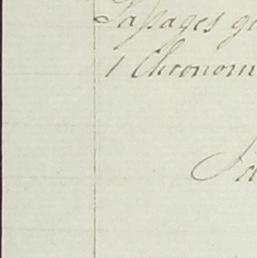 Passages gi
1 Chronom